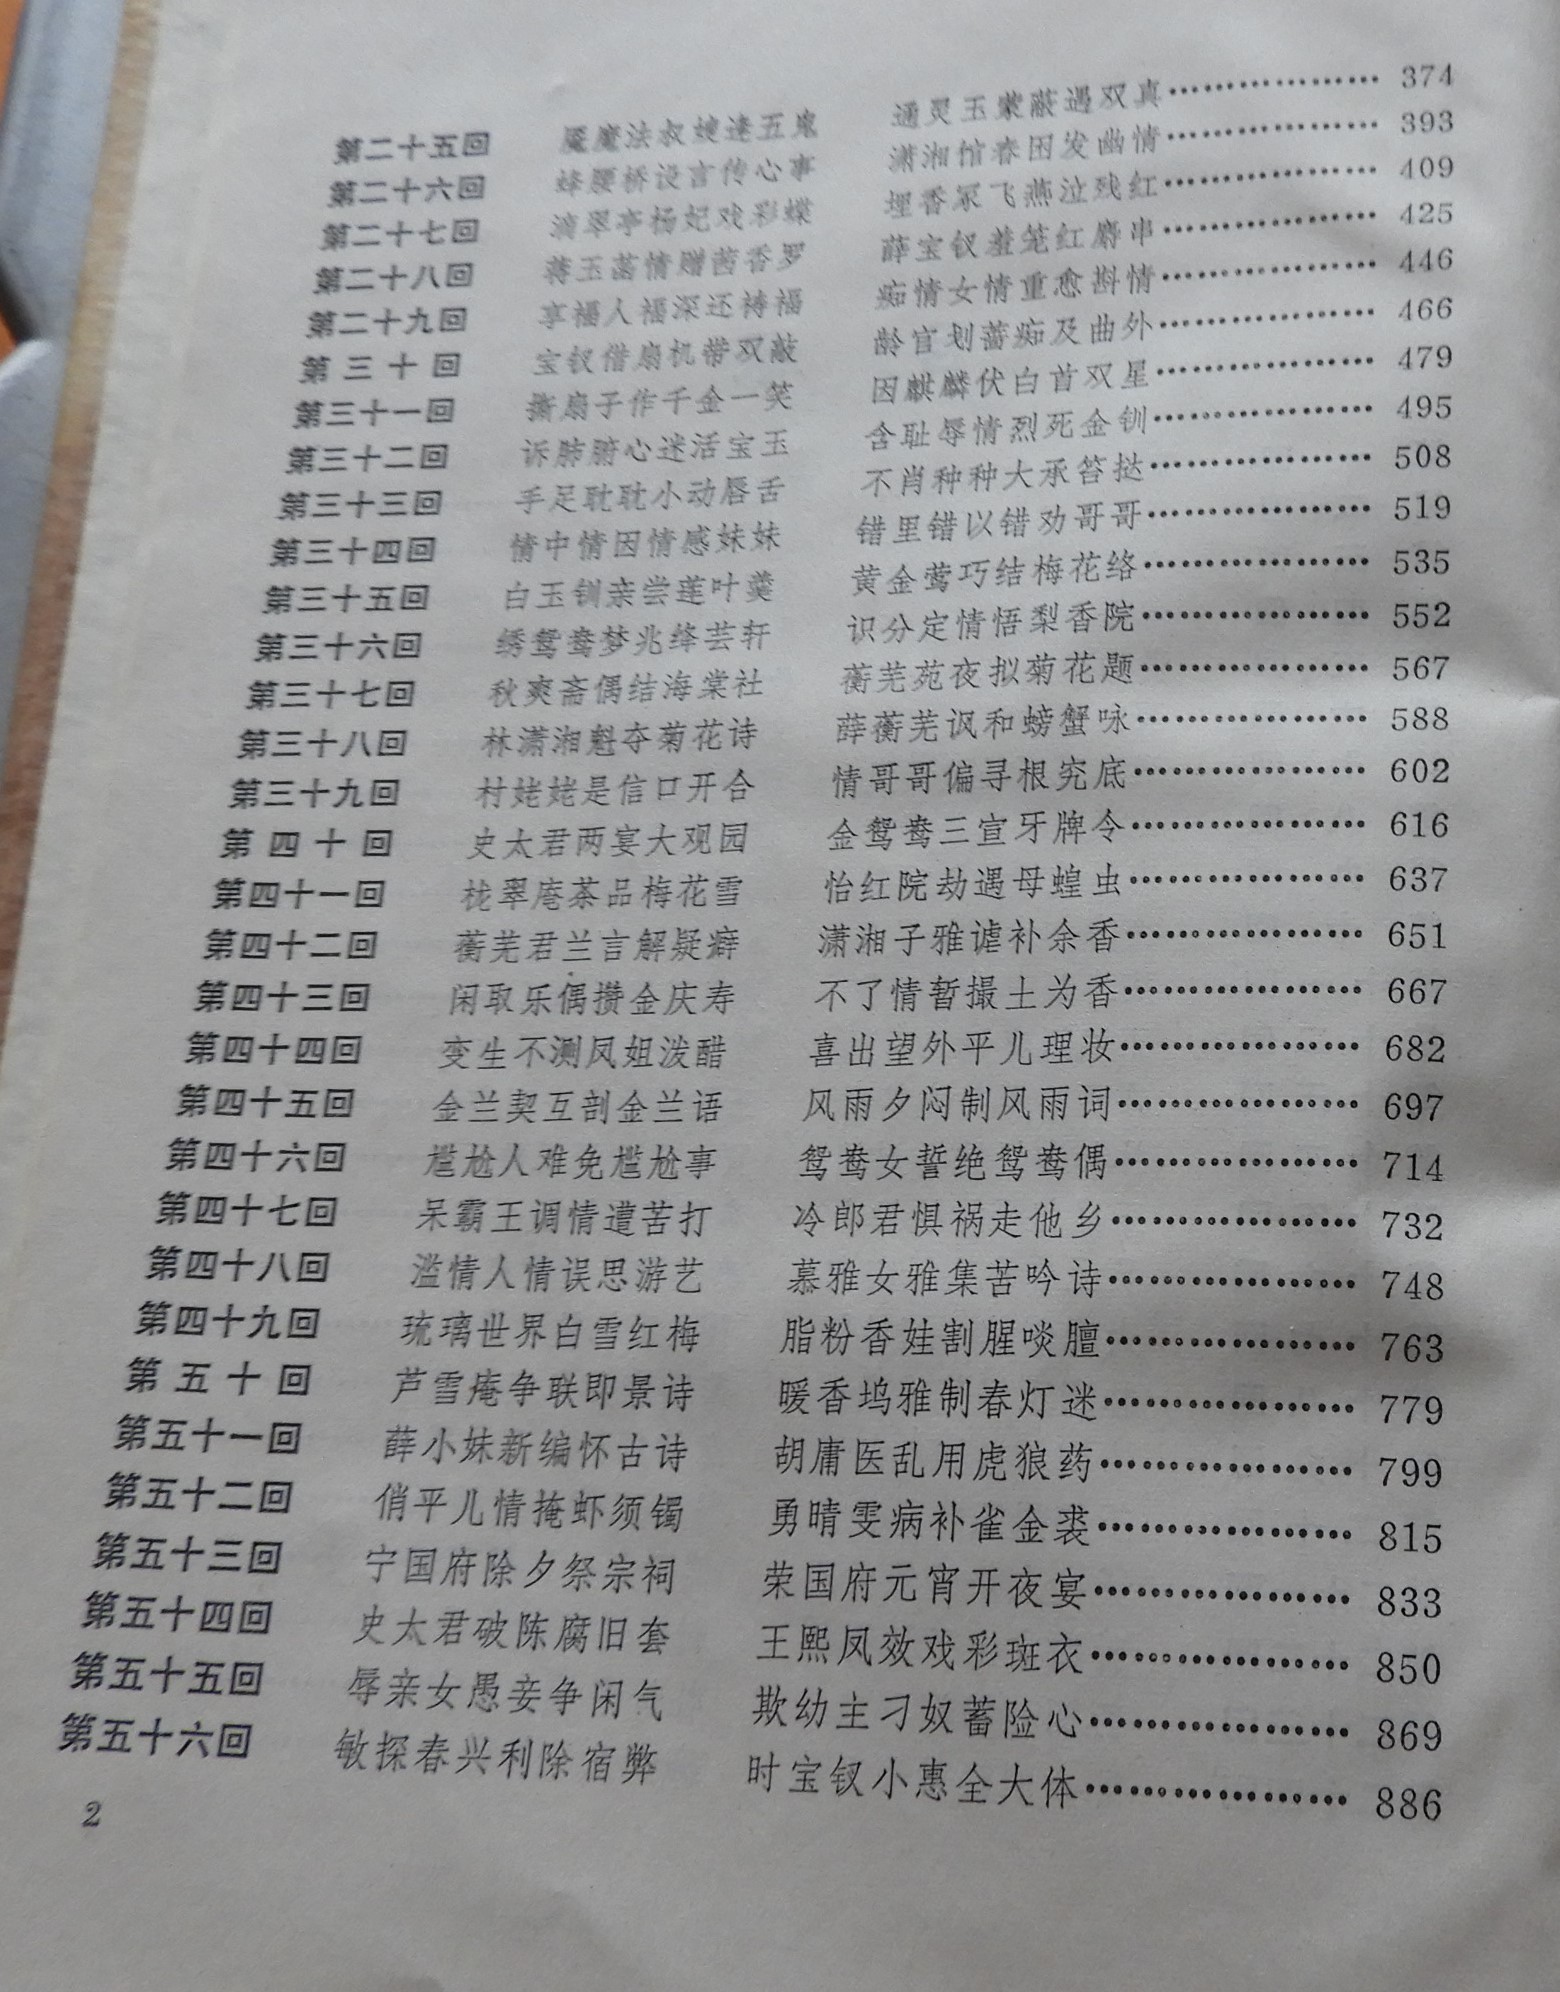 第二十五回 魇魔法叔嫂逢五鬼 通灵玉蒙蔽遇双真………………… 374
第二十六回 蜂腰桥设言传心事 潇湘馆春困发幽情………………… 393
第二十七回 滴翠亭杨妃戏彩蝶 埋香冢飞燕泣残红………………… 409
第二十八回 蒋玉菡情赠茜香罗 薛宝钗羞笼红麝串………………… 425
第二十九回 享福人福深还祷福 痴情女情重愈斟情………………… 446
第三十回 宝钗借扇机带双敲 龄官划蔷痴及曲外………………… 466
第三十一回 撕扇子作千金一笑 因麒麟伏白首双星………………… 479
第三十二回 诉肺腑心迷活宝玉 含耻辱情烈死金钏………………… 495
第三十三回 手足耽耽小动唇舌 不肖种种大承笞挞………………… 508
第三十四回 情中情因情感妹妹 错里错以错劝哥哥………………… 519
第三十五回 白玉钏亲尝莲叶羹 黄金莺巧结梅花络………………… 535
第三十六回 绣鸳鸯梦兆绛芸轩 识分定情悟梨香院………………… 552
第三十七回 秋爽斋偶结海棠社 蘅芜苑夜拟菊花题………………… 567
第三十八回 林潇湘魁夺菊花诗 薛蘅芜讽和螃蟹咏………………… 588
第三十九回 村姥姥是信口开合 情哥哥偏寻根究底………………… 602
第四十回 史太君两宴大观园 金鸳鸯三宣牙牌令………………… 616
第四十一回 栊翠庵茶品梅花雪 怡红院劫遇母蝗虫………………… 637
第四十二回 蘅芜君兰言解疑癖 潇湘子雅谑补余香………………… 651
第四十三回 闲取乐偶攒金庆寿 不了情暂撮土为香………………… 667
第四十四回 变生不测凤姐泼醋 喜出望外平儿理妆………………… 682
第四十五回 金兰契互剖金兰语 风雨夕闷制风雨词………………… 697
第四十六回 尴尬人难免尴尬事 鸳鸯女誓绝鸳鸯偶………………… 714
第四十七回 呆霸王调情遭苦打 冷郎君惧祸走他乡………………… 732
第四十八回 滥情人情误思游艺 慕雅女雅集苦吟诗………………… 748
第四十九回 琉璃世界白雪红梅 脂粉香娃割腥啖膻………………… 763
第五十回 芦雪庵争联即景诗 暖香坞雅制春灯迷………………… 779
第五十一回 薛小妹新编怀古诗 胡庸医乱用虎狼药………………… 799
第五十二回 俏平儿情掩虾须镯 勇晴雯病补雀金裘………………… 815
第五十三回 宁国府除夕祭宗祠 荣国府元宵开夜宴………………… 833
第五十四回 史太君破陈腐旧套 王熙凤效戏彩斑衣………………… 850
第五十五回 辱亲女愚妾争闲气 欺幼主刁奴蓄险心………………… 869
第五十六回 敏探春兴利除宿弊 时宝钗小惠全大体………………… 886
2